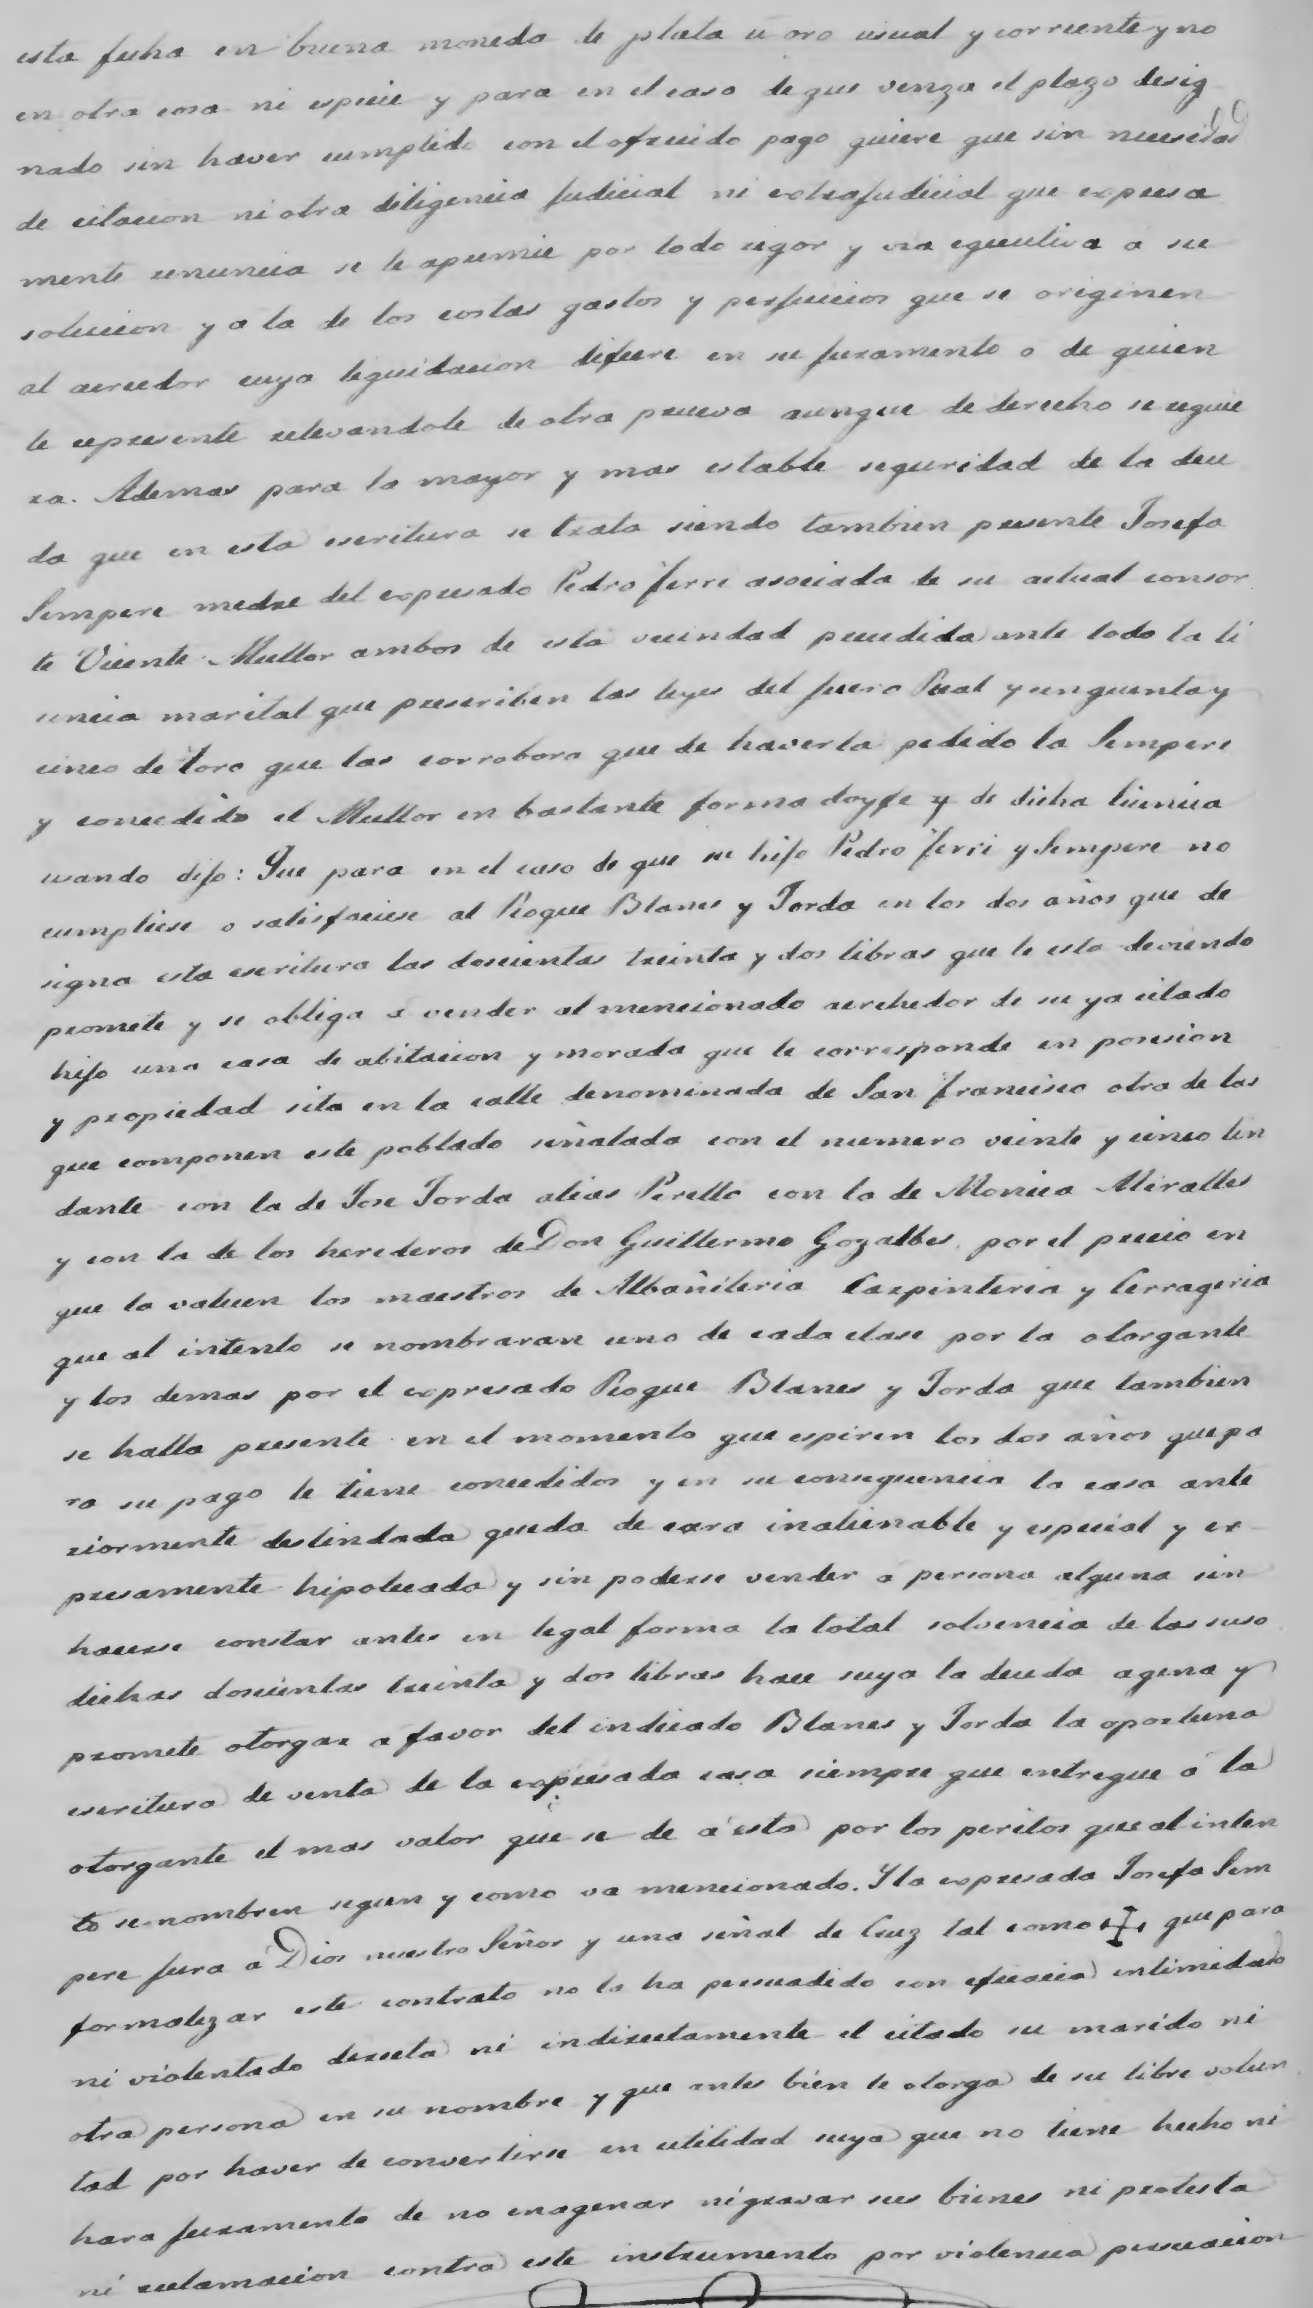 esta fecha en buena moneda de plata u oro usual y corriente y no
en otra cosa ni especie y para en el caso de que venza el plazo desig
nado sin haver cumplido con el ofrecido pago quiere que sin necesidad
de citacion ni otra diligencia judicial ni extrajudicial que expresa
mente renuncia se le apremie por todo rigor y via egecutiva a su
solucion y a la de los costas gastos y perjuicios que se originen
al acreedor cuya liquidacion difiere en su juramento o de quien
le represente relevandole de otra prueva aunque de derecho se requie
ra. Ademas para la mayor y mas estable seguridad de la deu
da que en esta escritura se trata siendo tambien presente Josefa
Sempere madre del expresado Pedro Ferri asociada de su actual consor
te Vicente Mullor ambos de esta vecindad precedida ante todo la li
cencia marital que prescriben las leyes del fuero Real y cinquenta y
cinco de toro que las corrobora que de haverla pedido la Sempere
y concedido el Mullor en bastante forma doy fe y de dicha licencia
usando dijo: Que para en el caso de que su hijo Pedro Ferri y Sempere no
cumpliese o satisfaciese al Roque Blanes y Jorda en los dos años que de
signa esta escritura las doscientas treinta y dos libras que le esta deviendo
promete y se obliga a vender al mencionado acrehedor de su ya citado
hijo una casa de abitacion y morada que le corresponde en posesion
y propiedad sita en la calle denominada de San Francisco otra de las
que componen este poblado señalada con el numero veinte y cinco lin
dante con la de Jose Jorda alias Perello con la de Monica Miralles
y con la de los herederos de Don Guillermo Gozalbes por el precio en
que la valuen los maestros de Albañileria Carpinteria y Cerrageria
que al intento se nombraran uno de cada clase por la otorgante
y los demas por el expresado Roque Blanes y Jorda que tambien
se halla presente en el momento que espiren los dos años que pa
ra su pago le tiene concedidos y en su consequencia la casa ante
riormente deslindada queda de cara inalienable y especial y ex
presamente hipotecada y sin poderse vender a persona alguna sin
hacerse constar antes en legal forma la total solvencia de las suso
dichas doscientas treinta y dos libras hace suya la deuda agena y
promete otorgar a favor del indicado Blanes y Jorda la oportuna
escritura de venta de la expresada casa siempre que entregue a la
otorgante el mas valor que se de a esta por los peritos que al inten
to se nombren segun y como va mencionado. Y la expresada Josefa Sem
pere jura a Dios nuestro Señor y una señal de Cruz tal como ✠ que para
formalizar este contrato no la ha persuadido con eficacia intimidado
ni violentado directa ni indirectamente el citado su marido ni
otra persona en su nombre y que antes bien le otorga de su libre volun
tad por haver de convertirse en utilidad suya que no tiene hecho ni
hara juramento de no enagenar ni gravar sus bienes ni protesta
ni reclamacion contra este instrumento por violencia persuacion